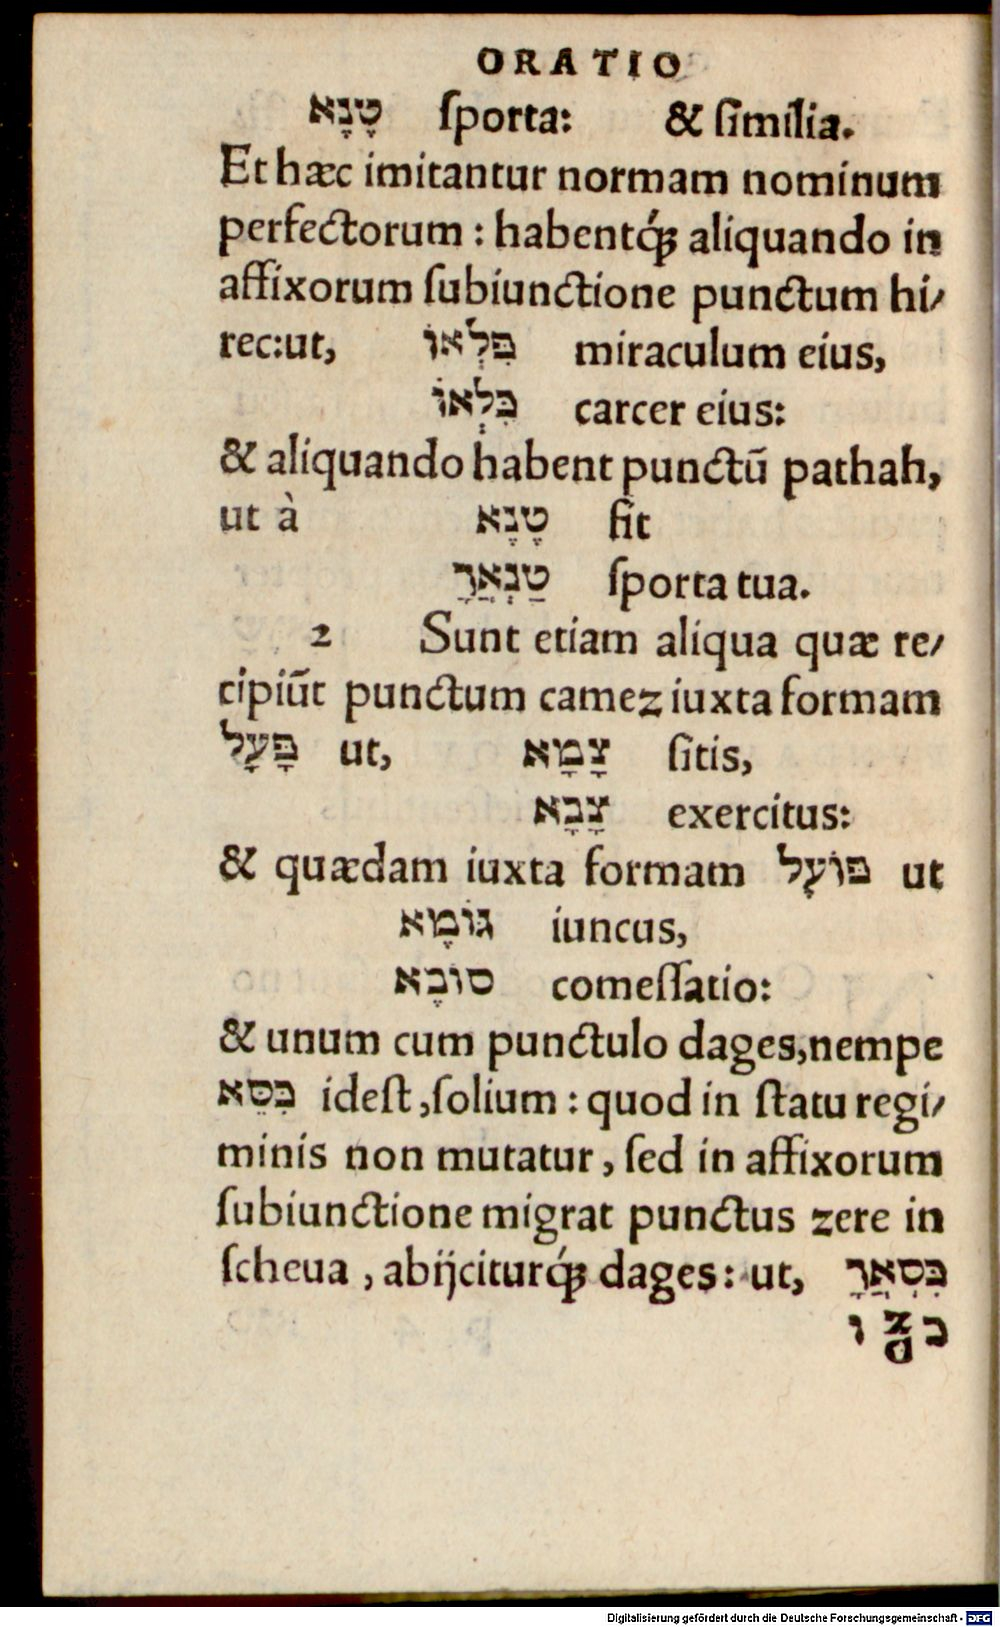 ORATIO
טֶנֶא ſporta: & ſimilia.
Et hæc imitantur normam nominum
perfectorum : habentq́; aliquando in
affixorum ſubiunctione punctum hi/
rec:ut, פִּלְאוֹ miraculum eius,
כִּלְאוֹ carcer eius:
& aliquando habent punctū pathah,
ut à טֶנֶא fit
טַנְאֲךָ ſporta tua.
2 Sunt etiam aliqua quæ re/
cipiūt punctum camez iuxta formam
פָּעָל ut, צָמָא ſitis,
צָבָא exercitus:
& quædam iuxta formam פּוֹעֶל ut
גּוֹמֶא iuncus,
סוֹבֶא comeſſatio:
& unum cum punctulo dages,nempe
כִּסֵּא ideſt ,ſolium : quod in ſtatu regi/
minis non mutatur , ſed in affixorum
ſubiunctione migrat punctus zere in
ſcheua , abijciturq́; dages: ut, כִּסְאֲךָ
Digitalisierung gefördert durch die Deutsche Forschungsgemeinschaft - DFG